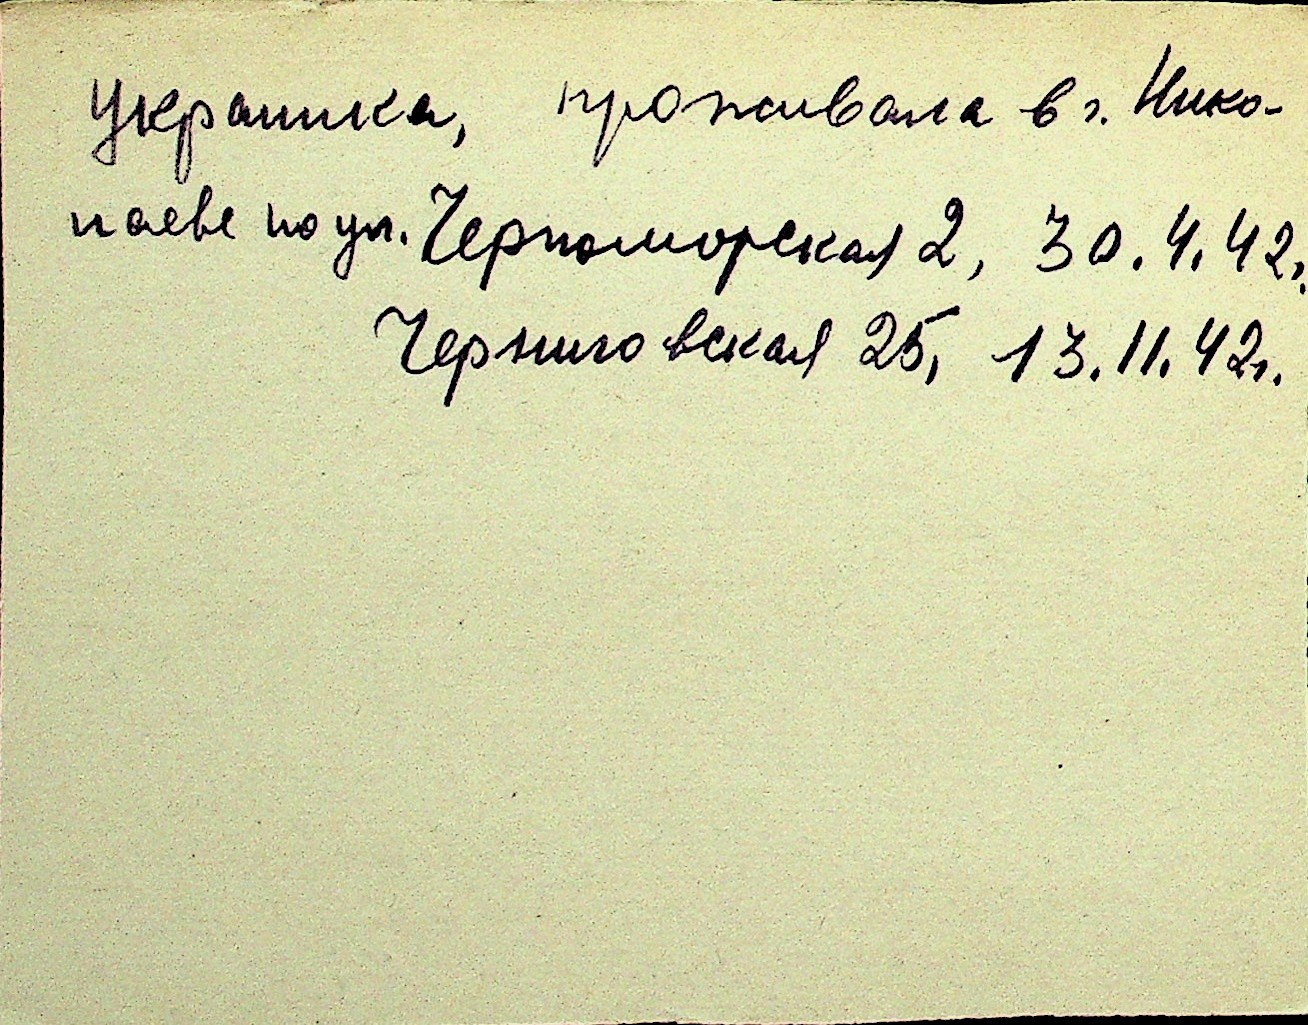 Украинка, проживала в г. Нико-
лаеве по ул. Черноморская 2, 30.4.42г.
Черниговская 25, 13.11.42г.